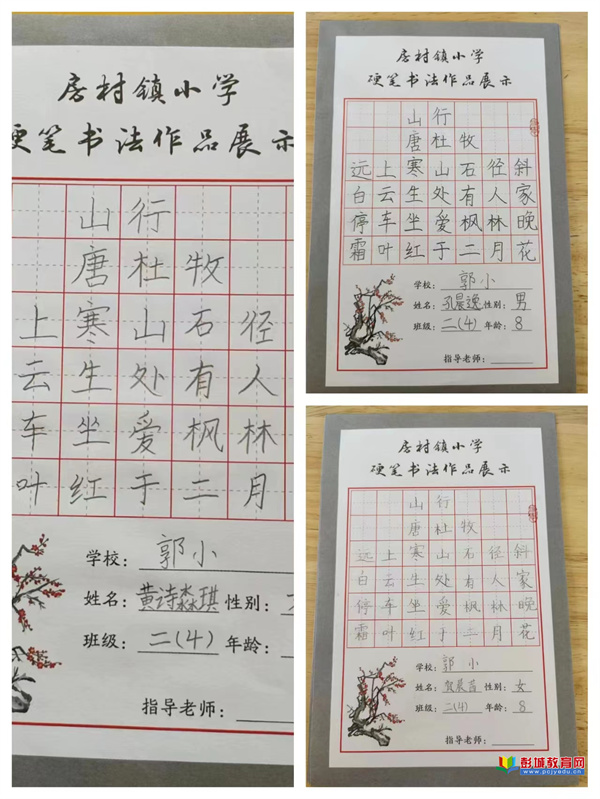 房村镇小学
硬笔书法作品展示
山行
唐杜牧
上寒山石径
云生处有人
车坐爱枫林
叶红于二月
学校：郭小
姓名：黄诗淼琪 性别：
班级：二(4) 年龄：
指导老师：
房村镇小学
硬笔书法作品展示
山行
唐杜牧
远上寒山石径斜
白云生处有人家
停车坐爱枫林晚
霜叶红于二月花
学校：郭小
姓名：孔晨逸 性别：男
班级：二(4) 年龄：8
指导老师：
房村镇小学
硬笔书法作品展示
山行
唐杜牧
远上寒山石径斜
白云生处有人家
停车坐爱枫林晚
霜叶红于二月花
学校：郭小
姓名：贺晨 性别：女
班级：二(4) 年龄：8
指导老师：
彭城教育网
www.pcjyedu.cn